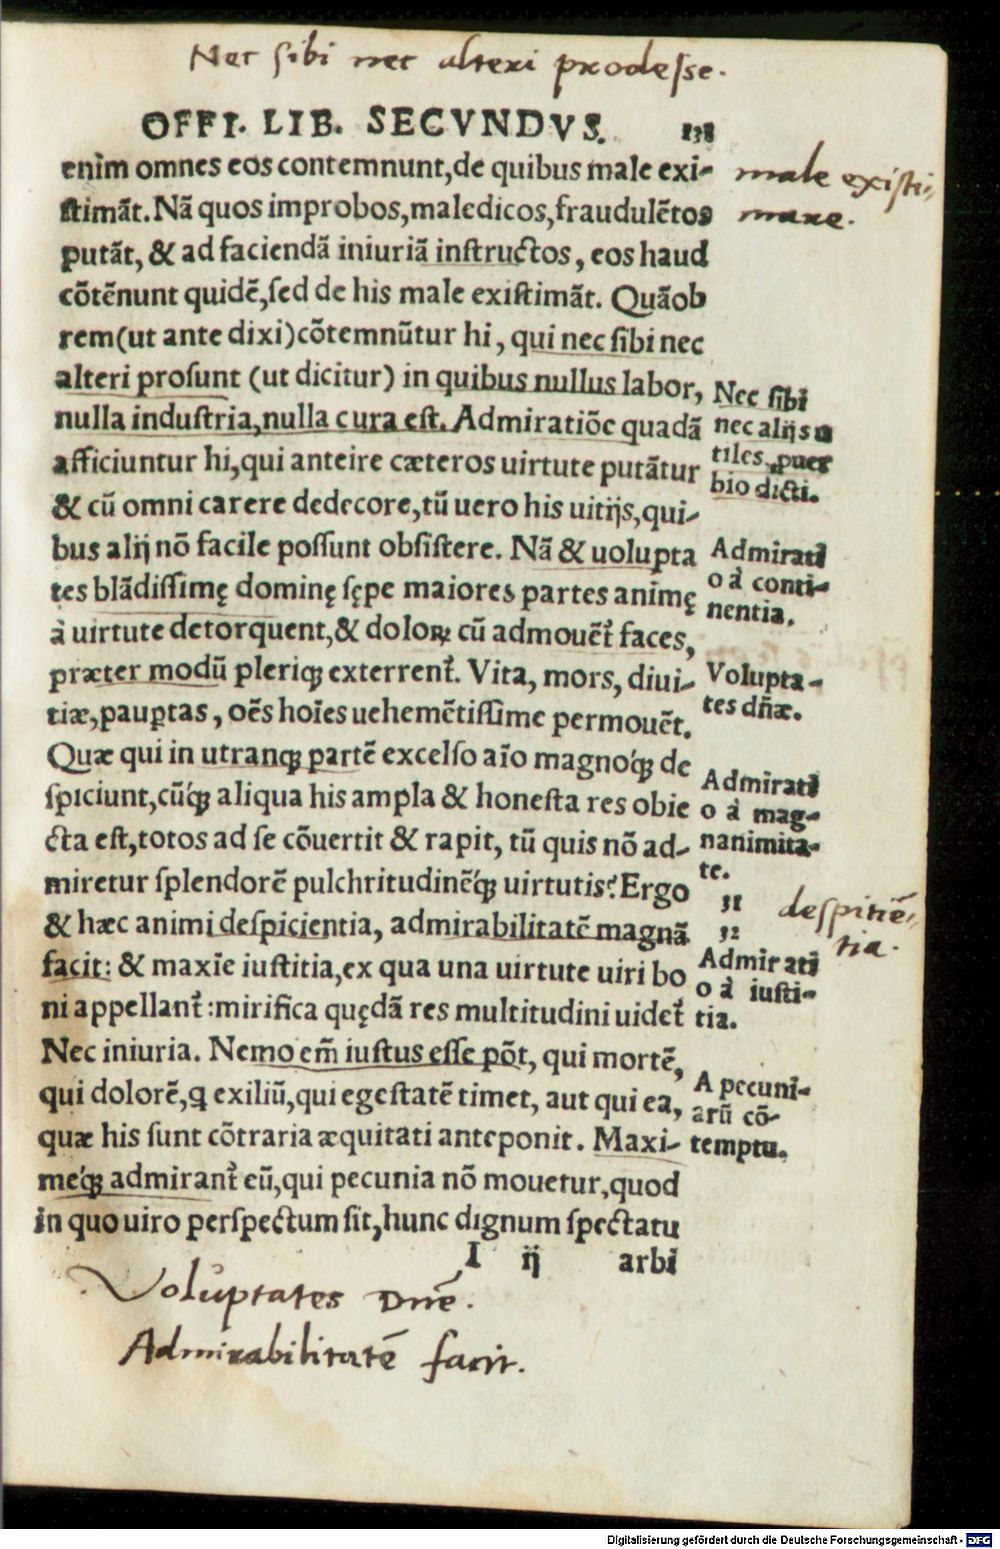 Nec sibi nec alteri prodesse.
OFFI. LIB. SECVNDVS.
enim omnes eos contemnunt,de quibus male exi-
stimãt.Nã quos improbos,maledicos,fraudulẽtos
putãt, & ad faciendã iniuriã instructos, eos haud
cõtẽnunt quidẽ,sed de his male existimãt. Quãob
rem(ut ante dixi)cõtemnũtur hi, qui nec sibi nec
alteri prosunt (ut dicitur) in quibus nullus labor,
nulla industria,nulla cura est. Admiratiõe quadã
afficiuntur hi,qui anteire cæteros uirtute putãtur
& cũ omni carere dedecore,tũ uero his uitijs,qui-
bus alij nõ facile possunt obsistere. Nã & uolupta
tes blãdissimę dominę sępe maiores partes animę
à uirtute detorquent,& doloꝝ cũ admouẽt᷑ faces,
præter modũ pleriqꝫ exterrent᷑. Vita, mors, diui-
tiæ,paup̱tas, oẽs hoĩes uehemẽtissime permouẽt.
Quæ qui in utranqꝫ partẽ excelso aĩo magnoq́ꝫ de
spiciunt,cũq́ꝫ aliqua his ampla & honesta res obie
cta est,totos ad se cõuertit & rapit, tũ quis nõ ad-
miretur splendorẽ pulchritudinẽq́ꝫ uirtutis? Ergo
& hæc animi despicientia, admirabilitatẽ magnã
facit: & maxĩe iustitia,ex qua una uirtute uiri bo
ni appellant᷑:mirifica quędã res multitudini uidet᷑
Nec iniuria. Nemo em̃ iustus esse põt, qui mortẽ,
qui dolorẽ,ꝗ exiliũ,qui egestatẽ timet, aut qui ea,
quæ his sunt cõtraria æquitati anteponit. Maxi-
meq́ꝫ admirant᷑ eũ,qui pecunia nõ mouetur,quod
in quo uiro perspectum sit,hunc dignum spectatu
I ij arbi
male existi-
mare.
Nec sibi
nec alijs u
tiles, ꝓuer
bio dicti.
Admirati
o à conti-
nentia.
Volupta-
tes dñæ.
Admirati
o à mag-
nanimita-
te.
31
32
despiciẽ-
tia.
Admirati
o à iusti-
tia.
A pecuni-
arũ cõ-
temptu.
Voluptates Dnẽ.
Admirabilitatẽ facit.
Digitalisierung gefördert durch die Deutsche Forschungsgemeinschaft - DFG